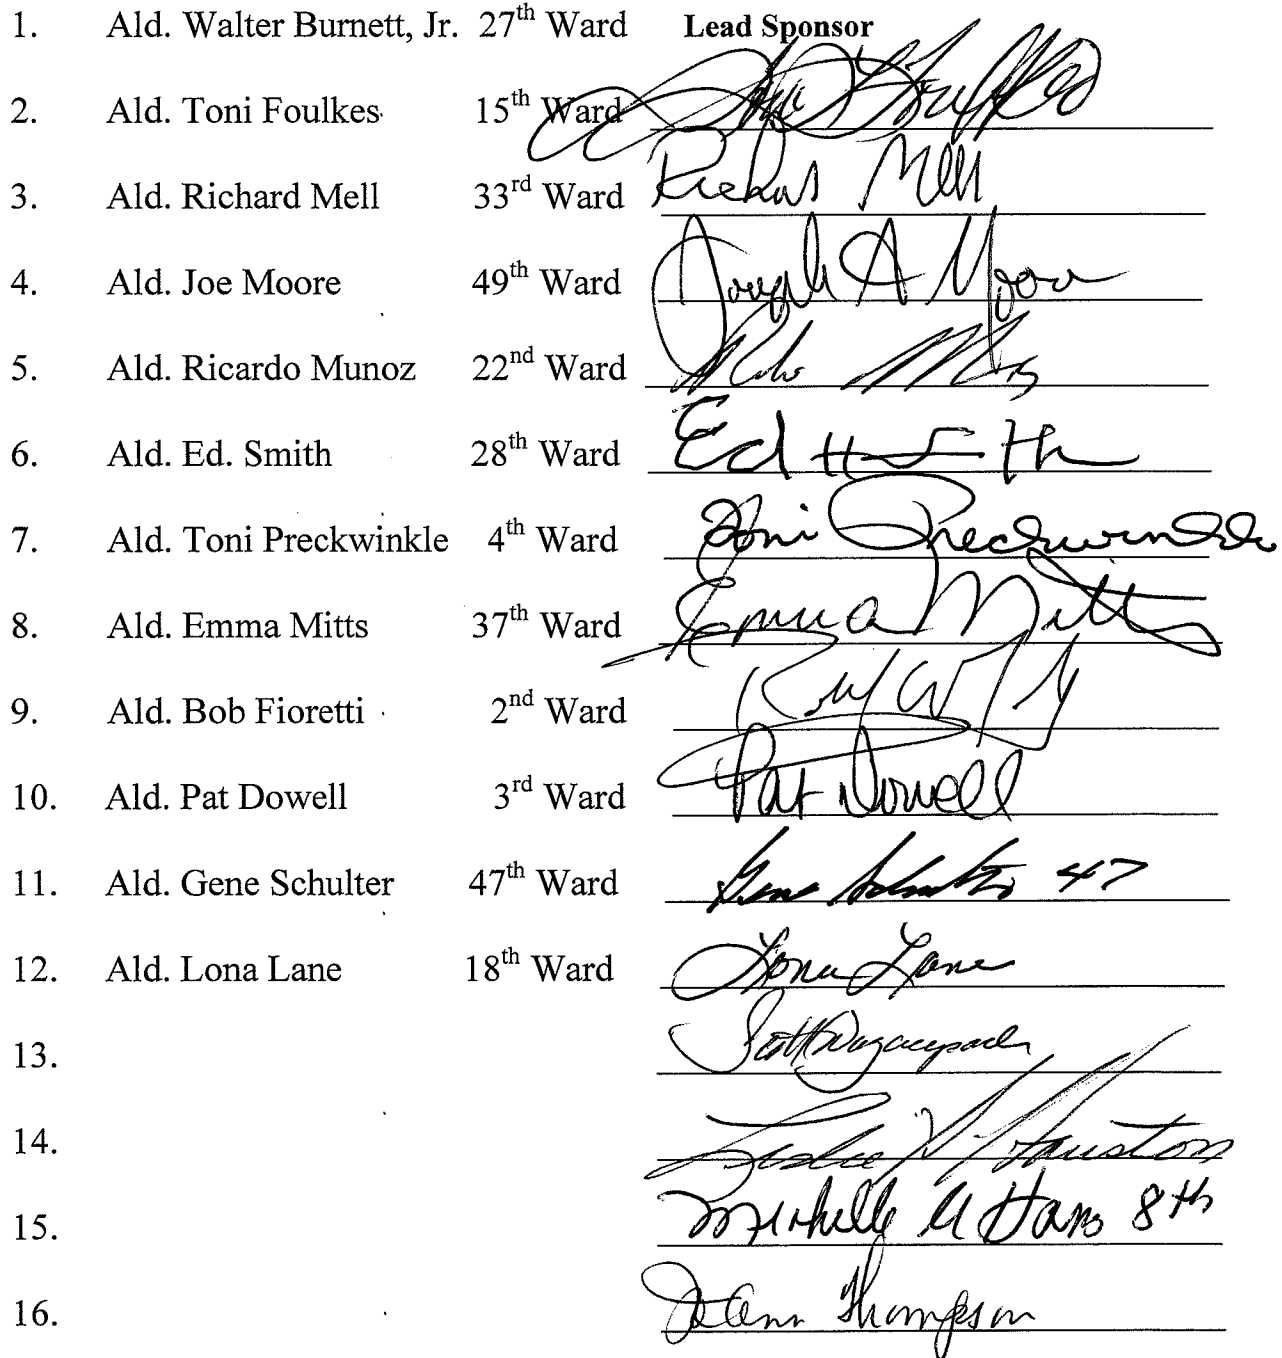 1. Ald. Walter Burnett, Jr. 27th Ward Lead Sponsor
2. Ald. Toni Foulkes 15th Ward Toni Foulkes
3. Ald. Richard Mell 33rd Ward Richard Mell
4. Ald. Joe Moore 49th Ward Joseph A Moore
5. Ald. Ricardo Munoz 22nd Ward
6. Ald. Ed. Smith 28th Ward Ed H Smith
7. Ald. Toni Preckwinkle 4th Ward Toni Preckwinkle
8. Ald. Emma Mitts 37th Ward Emma Mitts
9. Ald. Bob Fioretti 2nd Ward
10. Ald. Pat Dowell 3rd Ward Pat Dowell
11. Ald. Gene Schulter 47th Ward Gene Schulter 47
12. Ald. Lona Lane 18th Ward Lona Lane
13. Scott Waguespack
14. Leslie Hairston
15. Michelle A Harris 8th
16. JoAnn Thompson